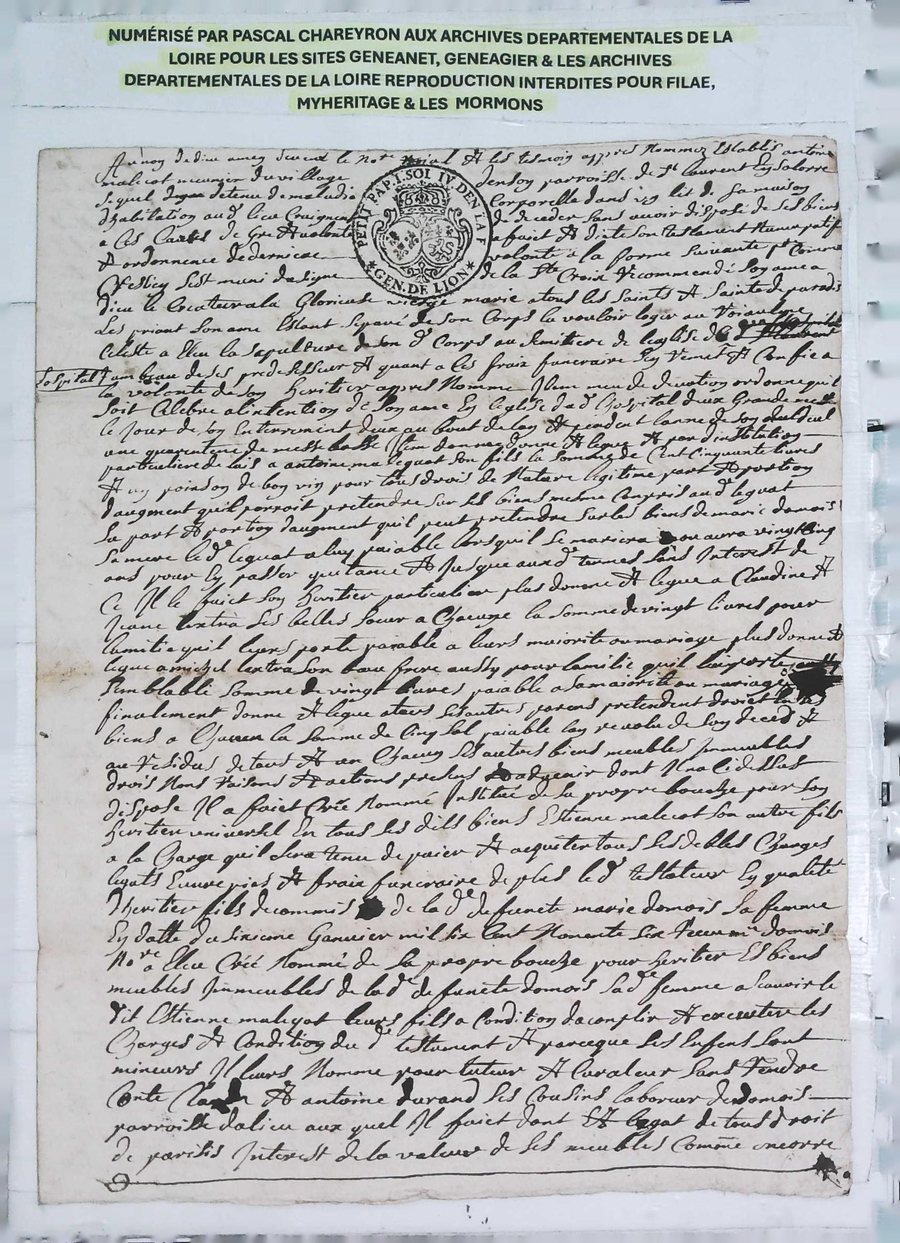 NUMÉRISÉ PAR PASCAL CHAREYRON AUX ARCHIVES DEPARTEMENTALES DE LA
LOIRE POUR LES SITES GENEANET, GENEAGIER & LES ARCHIVES
DEPARTEMENTALES DE LA LOIRE REPRODUCTION INTERDITES POUR FILAE,
MYHERITAGE & LES MORMONS
Au nom de dieu amen devant le Notre Roial & les tesmoin appres Nommez Establis antoine
malicot meunier du village parroisse de St laurent
lequel detenu de maladie Corporelle dans un lit de sa maison
dhabitation aud lieu Craignent de deceder sans avoir disposé de ses biens
a Ces de Gré & volonté a faict & dicté son testament
& ordonnence de derniere volonté a la forme suivante Comme
sest muni du signe de la Ste Croix Recommendé son ame a
dieu le Createur a la Glorieuse vierge marie a tous les saints & saintes de paradis
les priant son ame Estant separé de son Corps la vouloir loger au Roiaulme
Celeste a Eleu la sepulture de son dt Corps au semitiere de leglise de
PETIT PAP. 1. SOL IV. DEN. LA F. GEN. DE LION
lospital
tumbeau de ses predesessieur & quant a les frais funeraire Remet & Confie a
la volonte de son heritier appres Nommé Item meu de devotion ordonne quil
soit Celebre a lintention de son ame En leglise dud hospital deux Grande messe
le jour de son Enterrement deux au bout de lan & pendent lannee de son deul
une quarentene de messe basse Item donne & legue & par dinstitution
particuliere de lais a antoine malicot son fils la somme de Cent Cinquante livres
& un poinson de bon vin pour tous drois de Nature legitime part & portion
daugment quil porroit pretendre sur ses biens mesme Compris aud leguat
sa part & portion daugment quil peut pretendre sur les biens de marie domois
sa mere led leguat a luy paiable lorsquil se mariera ou aura vingt Cinq
ans pour En passer quitance & jusque aud termes sans Interest de
Ce Il le faict son heritier particulier plus donne & legue a Claudine &
Jeane ses belles soeur a Chacune la somme de vingt livres pour
lamitie quil leurs porte paiable a leurs majorité ou mariage plus donne &
legue a michel son beau frere aussy pour lamitie quil luy porte
semblable somme de vingt livres paiable a sa majorité ou mariage
finalement donne & legue a tous ses autres parens pretendent droict En ses
biens a Chacun la somme de Cinq sol paiable lan revolu de son deced &
au Residus de tous & un Chacun ses autres biens meubles Immeubles
drois Noms Raisons & actions presens & advenir dont Il na Cidessus
disposé Il a faict Créé Nommé Institué de sa propre bouche pour son
heritier universel En tous ses dits biens Estienne malicot son autre fils
a la Charge quil sera tenu de paier & aquiter tous ses debtes Charges
legats Euvre pies & frais funeraire de plus le dt testateur En qualité
dheritier fideicommis de la dte defuncte marie domois sa femme
En datte du sixieme Ganvier mil six Cent Nonante six Receu me domois
Nore a Eleu Créé Nommé de sa propre bouche pour heritier Es biens
meubles Immeubles de la dte defuncte domois sa dte femme a scavoir le
dit Estienne malicot leurs fils a Condition dacomplir & executer les
Charges & Condition du dt testament & parceque ses Enfens sont
mineurs Il leurs Nomme pour tuteur & Curateur sans Rendre
Conte & antoine durand ses Cousins laboreur de domois
parroisse dalieu aux quel Il faict dont & legat de tous droit
de Interest de la valeur de ses meubles Comme encorre